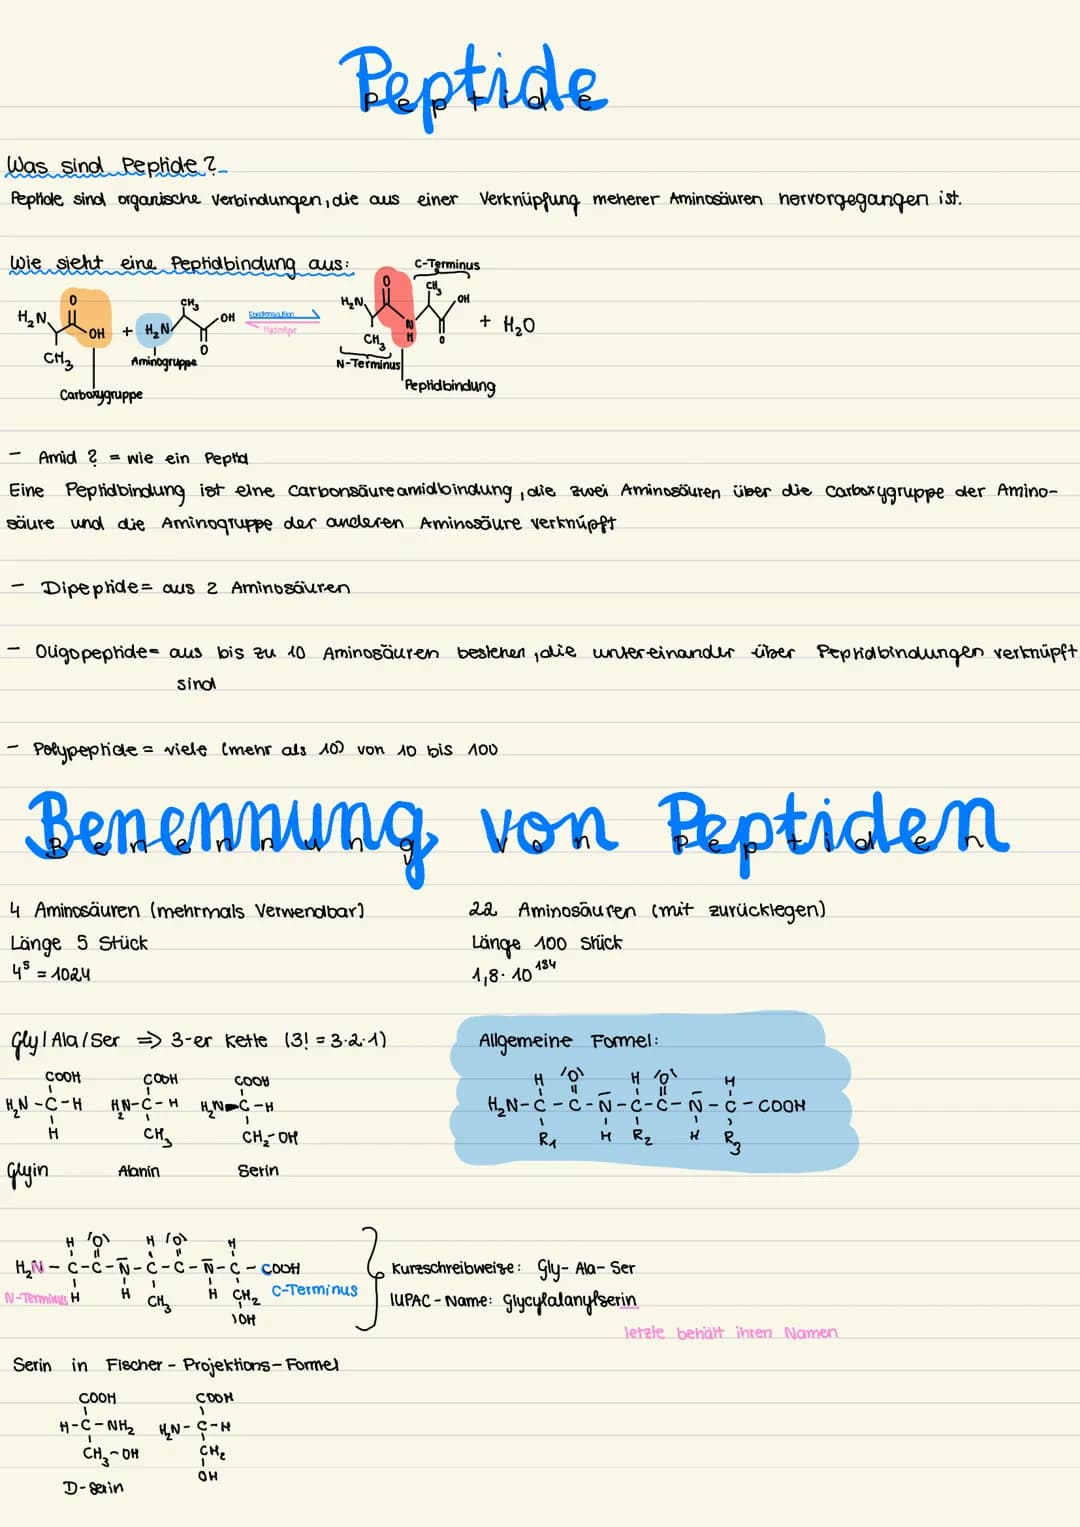 Peptide
Was sind Peptide?
Peptide sind organische Verbindungen, die aus einer Verknüpfung meherer Aminosäuren hervorgegangen ist.
Wie sieht eine Peptidbindung aus:
C-Terminus
O CH₃ O CH₃
H₂N OH + H₂N OH Kondensation H₂N N OH + H₂O
Hydrolyse
CH₃ Aminogruppe O CH₃ H O
N-Terminus
Carboxygruppe Peptidbindung
- Amid? = wie ein Peptid
Eine Peptidbindung ist eine Carbonsäureamidbindung, die zwei Aminosäuren über die Carboxygruppe der Amino-
säure und die Aminogruppe der anderen Aminosäure verknüpft
- Dipeptide = aus 2 Aminosäuren
- Oligopeptide = aus bis zu 10 Aminosäuren bestehen, die untereinander über Peptidbindungen verknüpft
sind
- Polypeptide = viele (mehr als 10) von 10 bis 100
Benennung von Peptiden
4 Aminosäuren (mehrmals Verwendbar)
Länge 5 Stück
4⁵ = 1024
22 Aminosäuren (mit zurücklegen)
Länge 100 Stück
1,8 · 10¹³⁴
Gly / Ala / Ser ⇒ 3-er Kette (3! = 3·2·1)
COOH COOH COOH
H₂N-C-H H₂N-C-H H₂N-C-H
H CH₃ CH₂-OH
Glyin Alanin Serin
Allgemeine Formel:
H O H O H
H₂N-C-C-N-C-C-N-C-COOH
R₁ H R₂ H R₃
H O H O H
H₂N-C-C-N-C-C-N-C-COOH
N-Terminus H H CH₃ H CH₂ C-Terminus
OH
Kurzschreibweise: Gly-Ala-Ser
IUPAC-Name: Glycylalanylserin
letzte behält ihren Namen
Serin in Fischer-Projektions-Formel
COOH COOH
H-C-NH₂ H₂N-C-H
CH₃-OH CH₂
OH
D-Serin